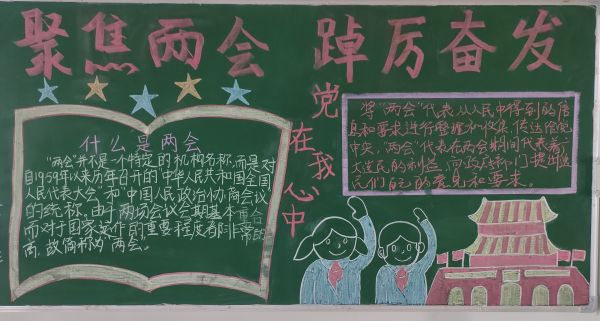 聚焦两会 踔厉奋发
党在我心中
什么是两会
"两会"并不是一个特定的机构名称,而是对
自1959年以来历年召开的"中华人民共和国全国
人民代表大会"和"中国人民政治协商会议
的统称,由于两场会议会期基本重合
而对于国家运作的重要程度都非常的
高,故简称为"两会。
将"两会"代表从人民中得到的信
息和要求进行整理和收集,传达给党
中央,"两会"代表在两会期间代表着广
大选民的利益,向政府部门提出选
民们自己的意见和要求。